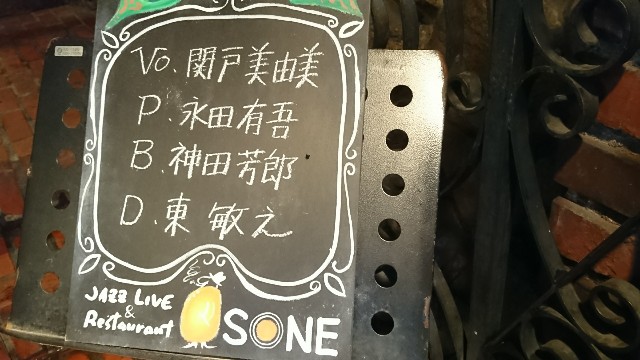 Vo. 関戸美由美
P. 永田有吾
B. 神田芳郎
D. 東 敏之
JAZZ LIVE
&
Restaurant
SONE